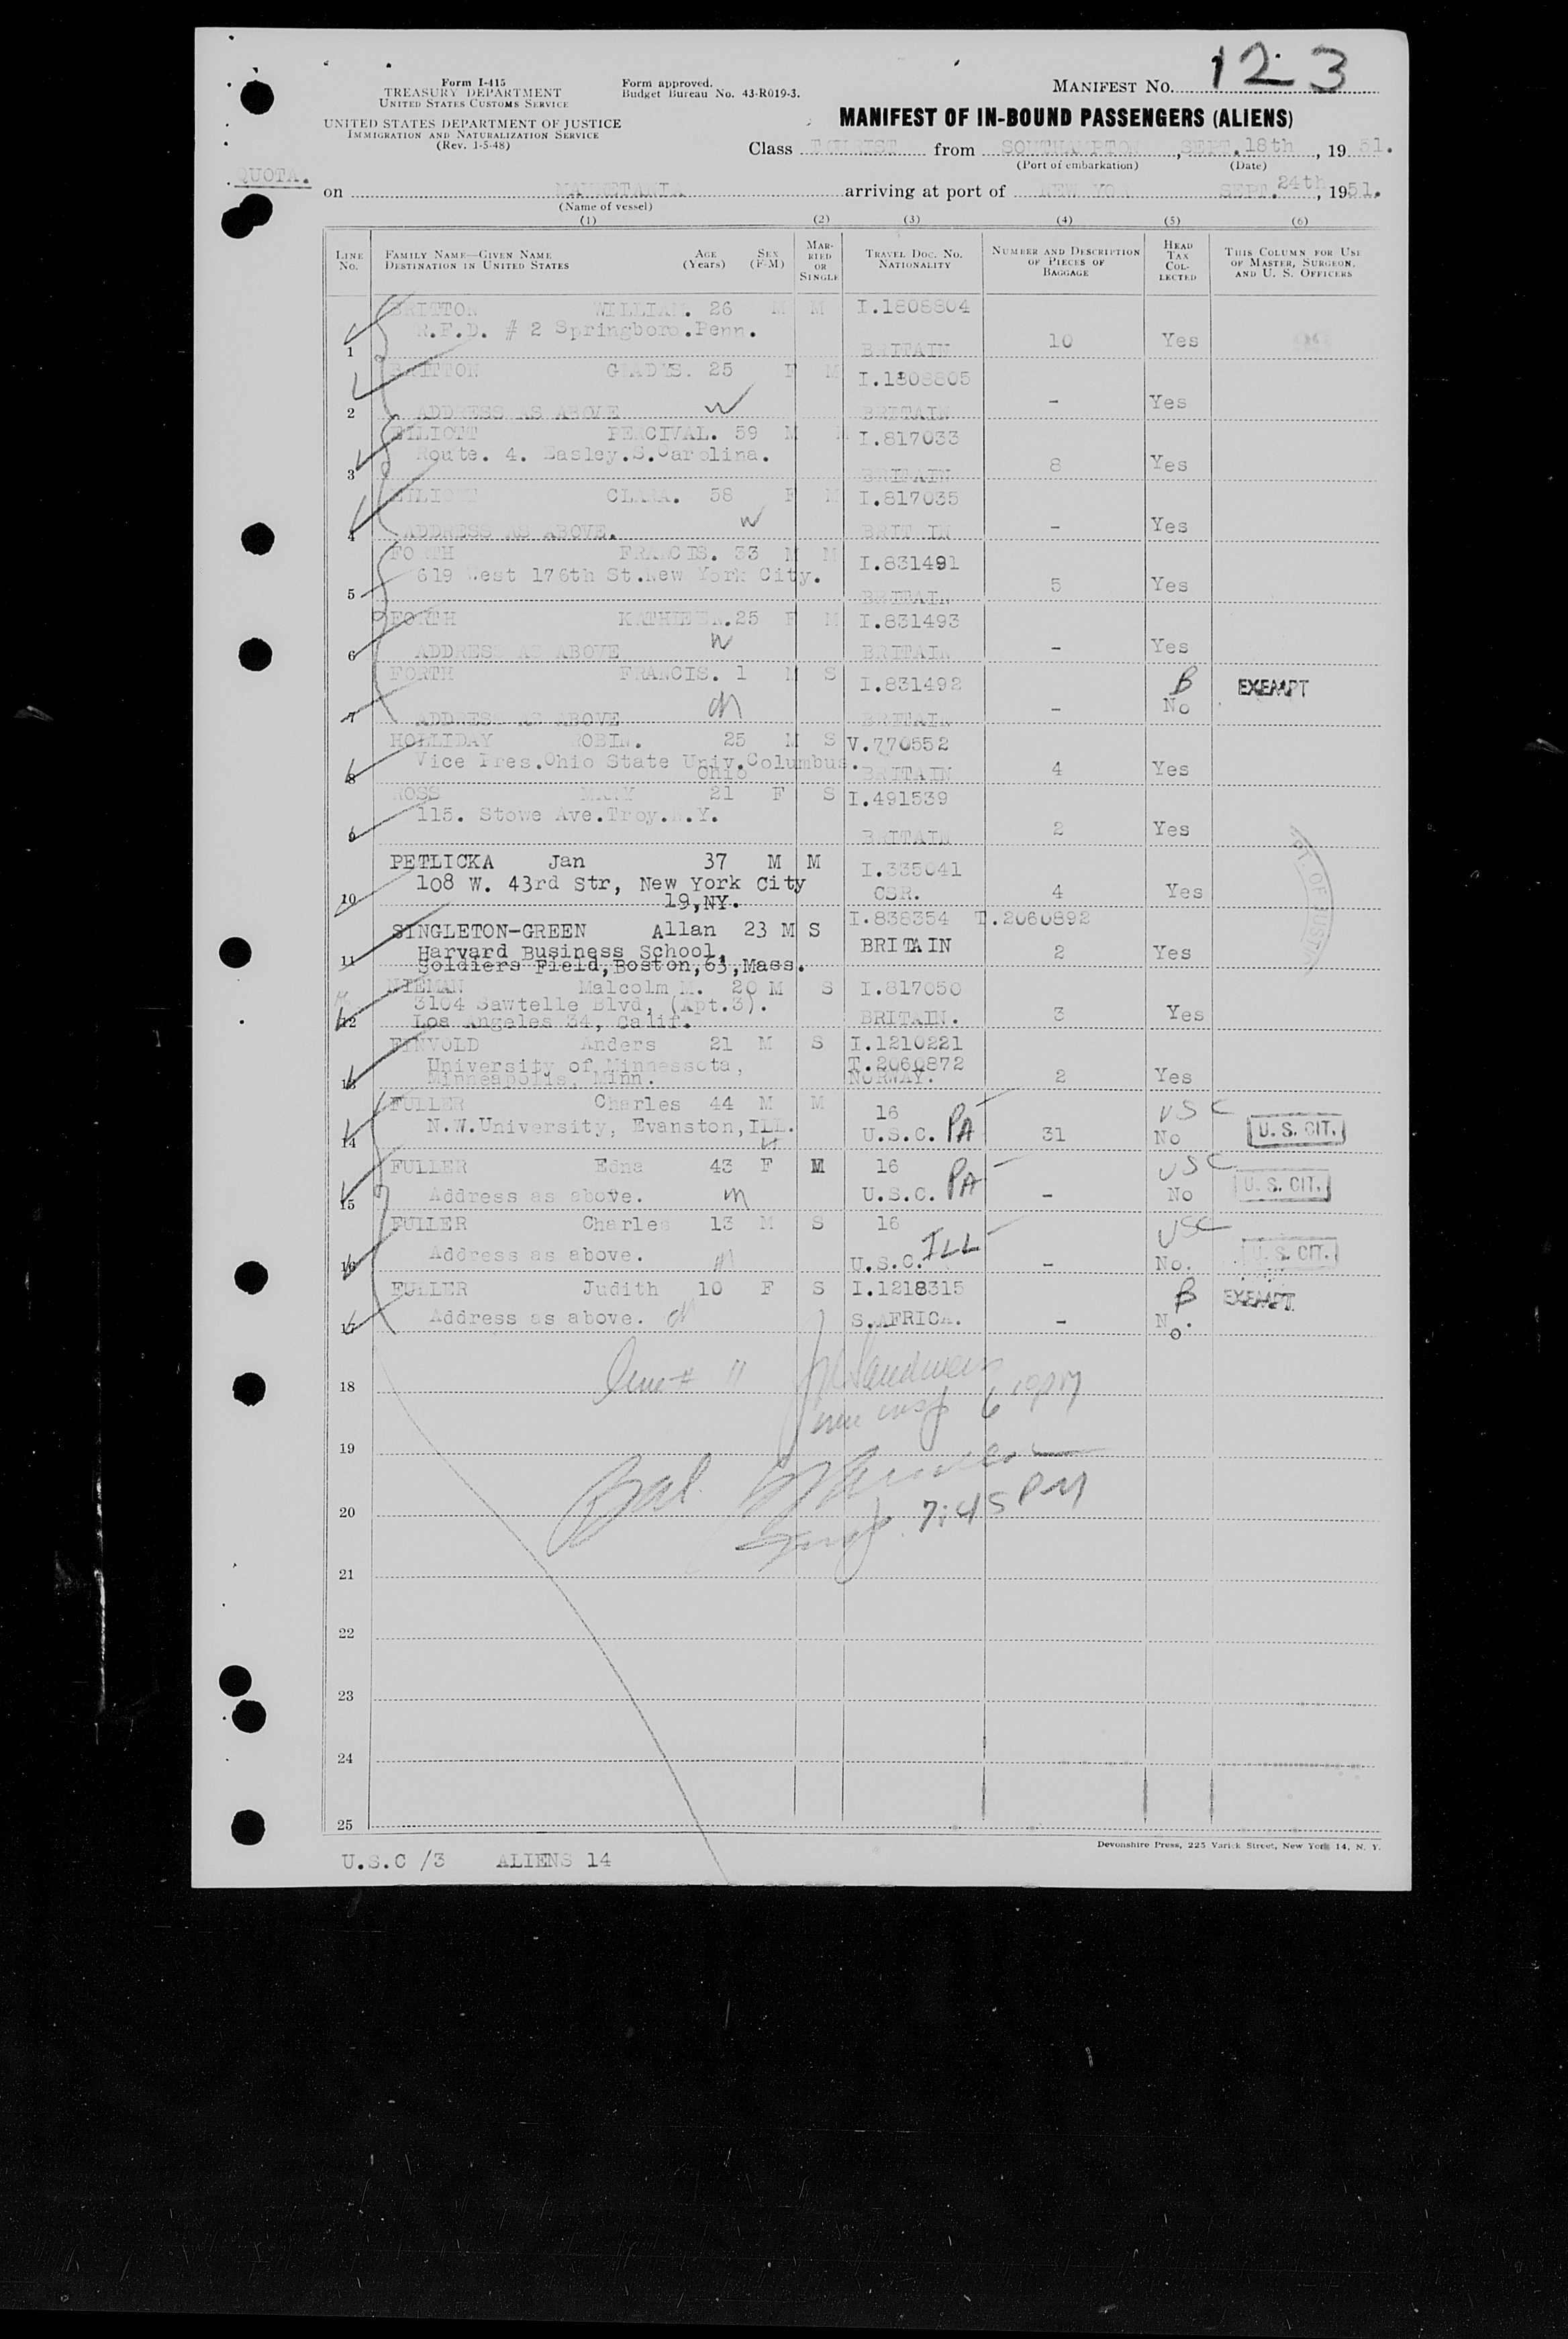 123
Form I-415
TREASURY DEPARTMENT
UNITED STATES CUSTOMS SERVICE
Form approved.
Budget Bureau No. 43-R019-3.
MANIFEST NO.
UNITED STATES DEPARTMENT OF JUSTICE
IMMIGRATION AND NATURALIZATION SERVICE
(Rev. 1-5-48)
MANIFEST OF IN-BOUND PASSENGERS (ALIENS)
Class TOURIST from SOUTHAMPTON, SEPT. 18th, 1951.
(Port of embarkation) (Date)
QUOTA.
on MAURETANIA arriving at port of NEW YORK SEPT. 24th, 1951.
(Name of vessel)
(1) (2) (3) (4) (5) (6)
LINE NO. FAMILY NAME—GIVEN NAME DESTINATION IN UNITED STATES AGE (Years) SEX (F-M) MARRIED OR SINGLE TRAVEL DOC. NO. NATIONALITY NUMBER AND DESCRIPTION OF PIECES OF BAGGAGE HEAD TAX COLLECTED THIS COLUMN FOR USE OF MASTER, SURGEON, AND U. S. OFFICERS
BRITTON WILLIAM. 26 M M I.1808804
R.F.D. # 2 Springboro.Penn.
1 BRITAIN 10 Yes
BRITTON GLADYS. 25 F M I.1808805
2 ADDRESS AS ABOVE W BRITAIN - Yes
ELLIOTT PERCIVAL. 59 M M I.817033
Route. 4. Easley.S.Carolina.
3 BRITAIN 8 Yes
ELLIOTT CLARA. 58 F M I.817035
4 ADDRESS AS ABOVE. W BRITAIN - Yes
FORTH FRANCIS. 33 M M I.831491
619 West 176th St.New York City.
5 BRITAIN 5 Yes
FORTH KATHLEEN.25 F M I.831493
6 ADDRESS AS ABOVE W BRITAIN - Yes
FORTH FRANCIS. 1 M S I.831492 B EXEMPT
7 ADDRESS AS ABOVE BRITAIN - No
HOLLIDAY ROBIN. 25 M S V.770552
Vice Pres.Ohio State Univ.Columbus.
8 Ohio BRITAIN 4 Yes
ROSS MARY 21 F S I.491539
115. Stowe Ave.Troy.N.Y.
9 BRITAIN 2 Yes
PETLICKA Jan 37 M M I.335041
108 W. 43rd Str, New York City
10 19,NY. CSR. 4 Yes
SINGLETON-GREEN Allan 23 M S I.838354 T.2060892
Harvard Business School, BRITAIN 2 Yes
11 Soldiers Field,Boston,63,Mass.
Malcolm M. 20 M S I.817050
3104 Sawtelle Blvd, (Apt.3).
12 Los Angeles 34, Calif. BRITAIN. 3 Yes
FINVOLD Anders 21 M S I.1210221
University of Minnessota, T.2060872
13 Minneapolis, Minn. NORWAY. 2 Yes
FULLER Charles 44 M M 16 USC
N.W.University, Evanston,ILL.
14 U.S.C. PA 31 No U. S. CIT.
FULLER Edna 43 F M 16 USC
15 Address as above. m U.S.C. PA - No U. S. CIT.
FULLER Charles 13 M S 16 USC
16 Address as above. m U.S.C. ILL - No. U. S. CIT.
FULLER Judith 10 F S I.1218315 B EXEMPT
17 Address as above. S.AFRICA. - No.
18
19
20 7:45 PM
21
22
23
24
25
Devonshire Press, 225 Varick Street, New York 14, N. Y.
U.S.C /3 ALIENS 14